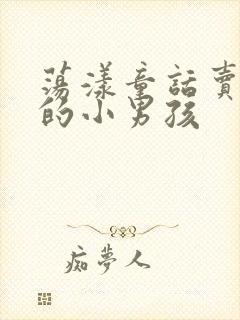 蕩漾童話賣
的小男孩
痴夢人